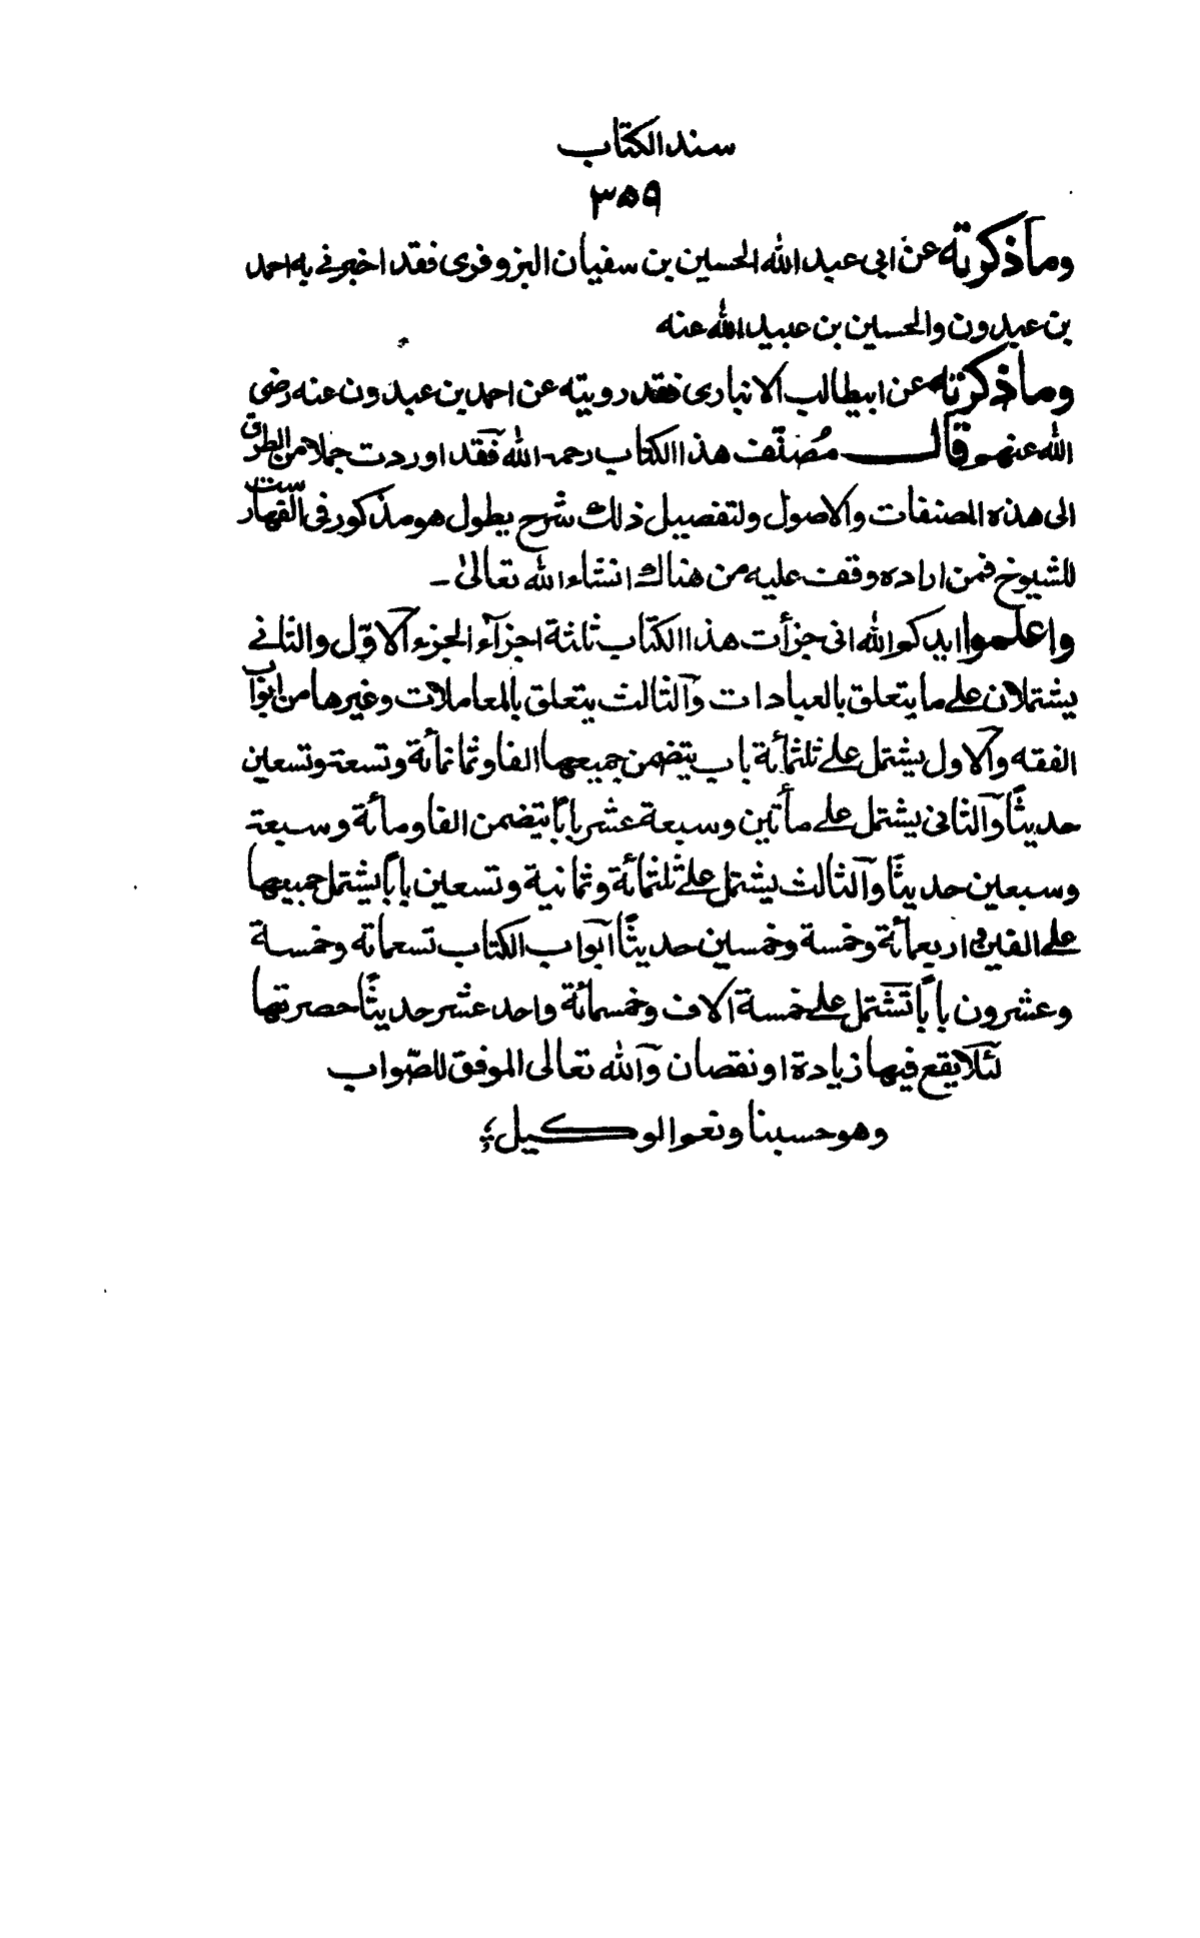 سند الكتاب
٣٥٩
وما ذكرته عن ابى عبد الله الحسين بن سفيان البزوفرى فقد اخبرنے به احمد
بن عبدون والحسين بن عبيد الله عنه
وما ذكرته عن ابيطالب الانبارى فقد رويته عن احمد بن عبدون عنه رضى
الله عنهم قال مُصنّف هذا الكتاب رحمه الله فقد اوردت جملا من الطرق
الى هذه المصنفات والاصول ولتفصيل ذلك شرح يطول هو مذكور فى الفهارست
للشيوخ فمن اراده وقف عليه من هناك انشاء الله تعالىٰ -
واعلموا ايدكم الله انى جزأت هذا الكتاب ثلثة اجزآء الجزء الاوّل والثانے
يشتملان علے ما يتعلق بالعبادات والثالث يتعلق بالمعاملات وغيرها من ابواب
الفقه والاول يشتمل علے ثلثمائة باب يتضمن جميعها الفا وثمانمائة وتسعة وتسعين
حديثًا والثانى يشتمل علے مأتين وسبعة عشر بابًا يتضمن الفا ومائة وسبعة
وسبعين حديثًا والثالث يشتمل علے ثلثمائة وثمانية وتسعين بابًا يشتمل جميعها
علے الفين و اربعمائة وخمسة وخمسين حديثًا ابواب الكتاب تسعمائه وخمسة
وعشرون بابًا تشتمل علے خمسة الاف وخمسمائة واحد عشر حديثًا حصرتها
لئلا يقع فيها زيادة او نقصان والله تعالى الموفق للصّواب
وهو حسبنا ونعم الوكيل